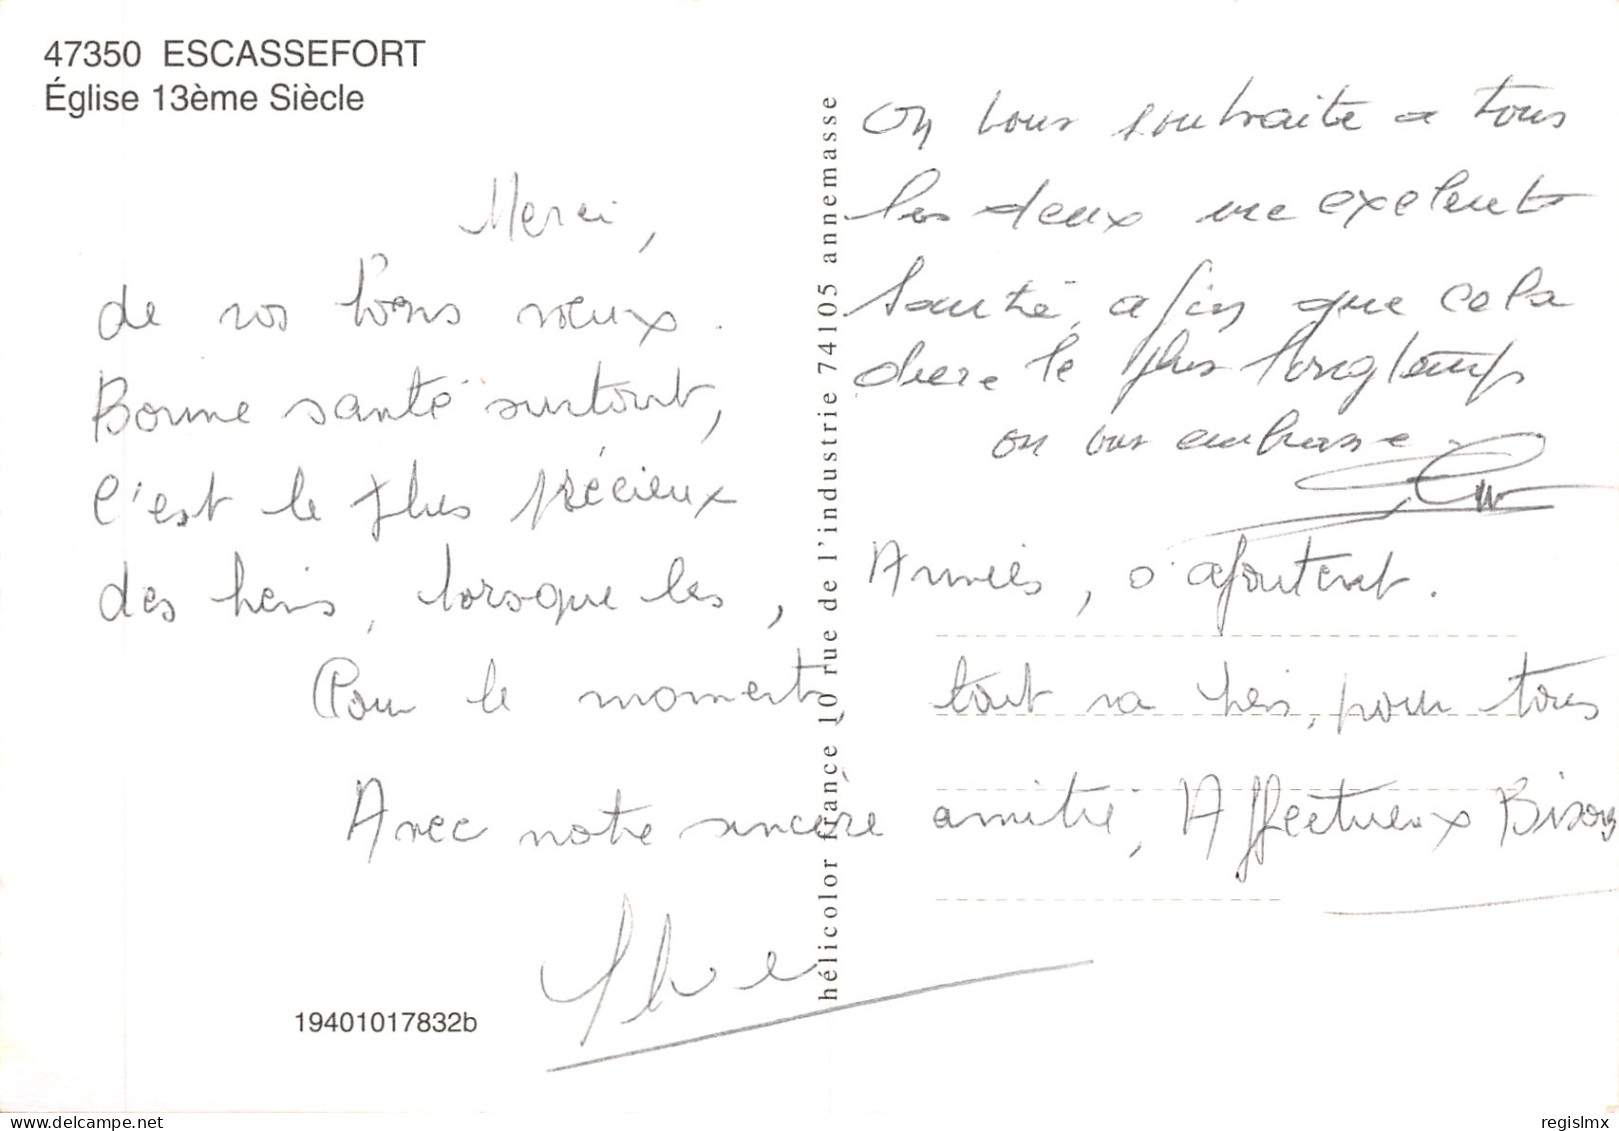 47350 ESCASSEFORT
Église 13ème Siècle
Merci,
de vos bons vœux.
Bonne santé surtout,
C'est le plus précieux
des biens, lorsque les,
Années, s'ajoutent.
Pour le moment, tout va bien, pour tous
Avec notre sincère amitié, Affectueux Bisous
On vous souhaite a tous
les deux une exelente
Santé, afin que cela
dure le plus longtemps
on vous embrasse
hélicolor france 10 rue de l'industrie 74105 annemasse
19401017832b
regislmx